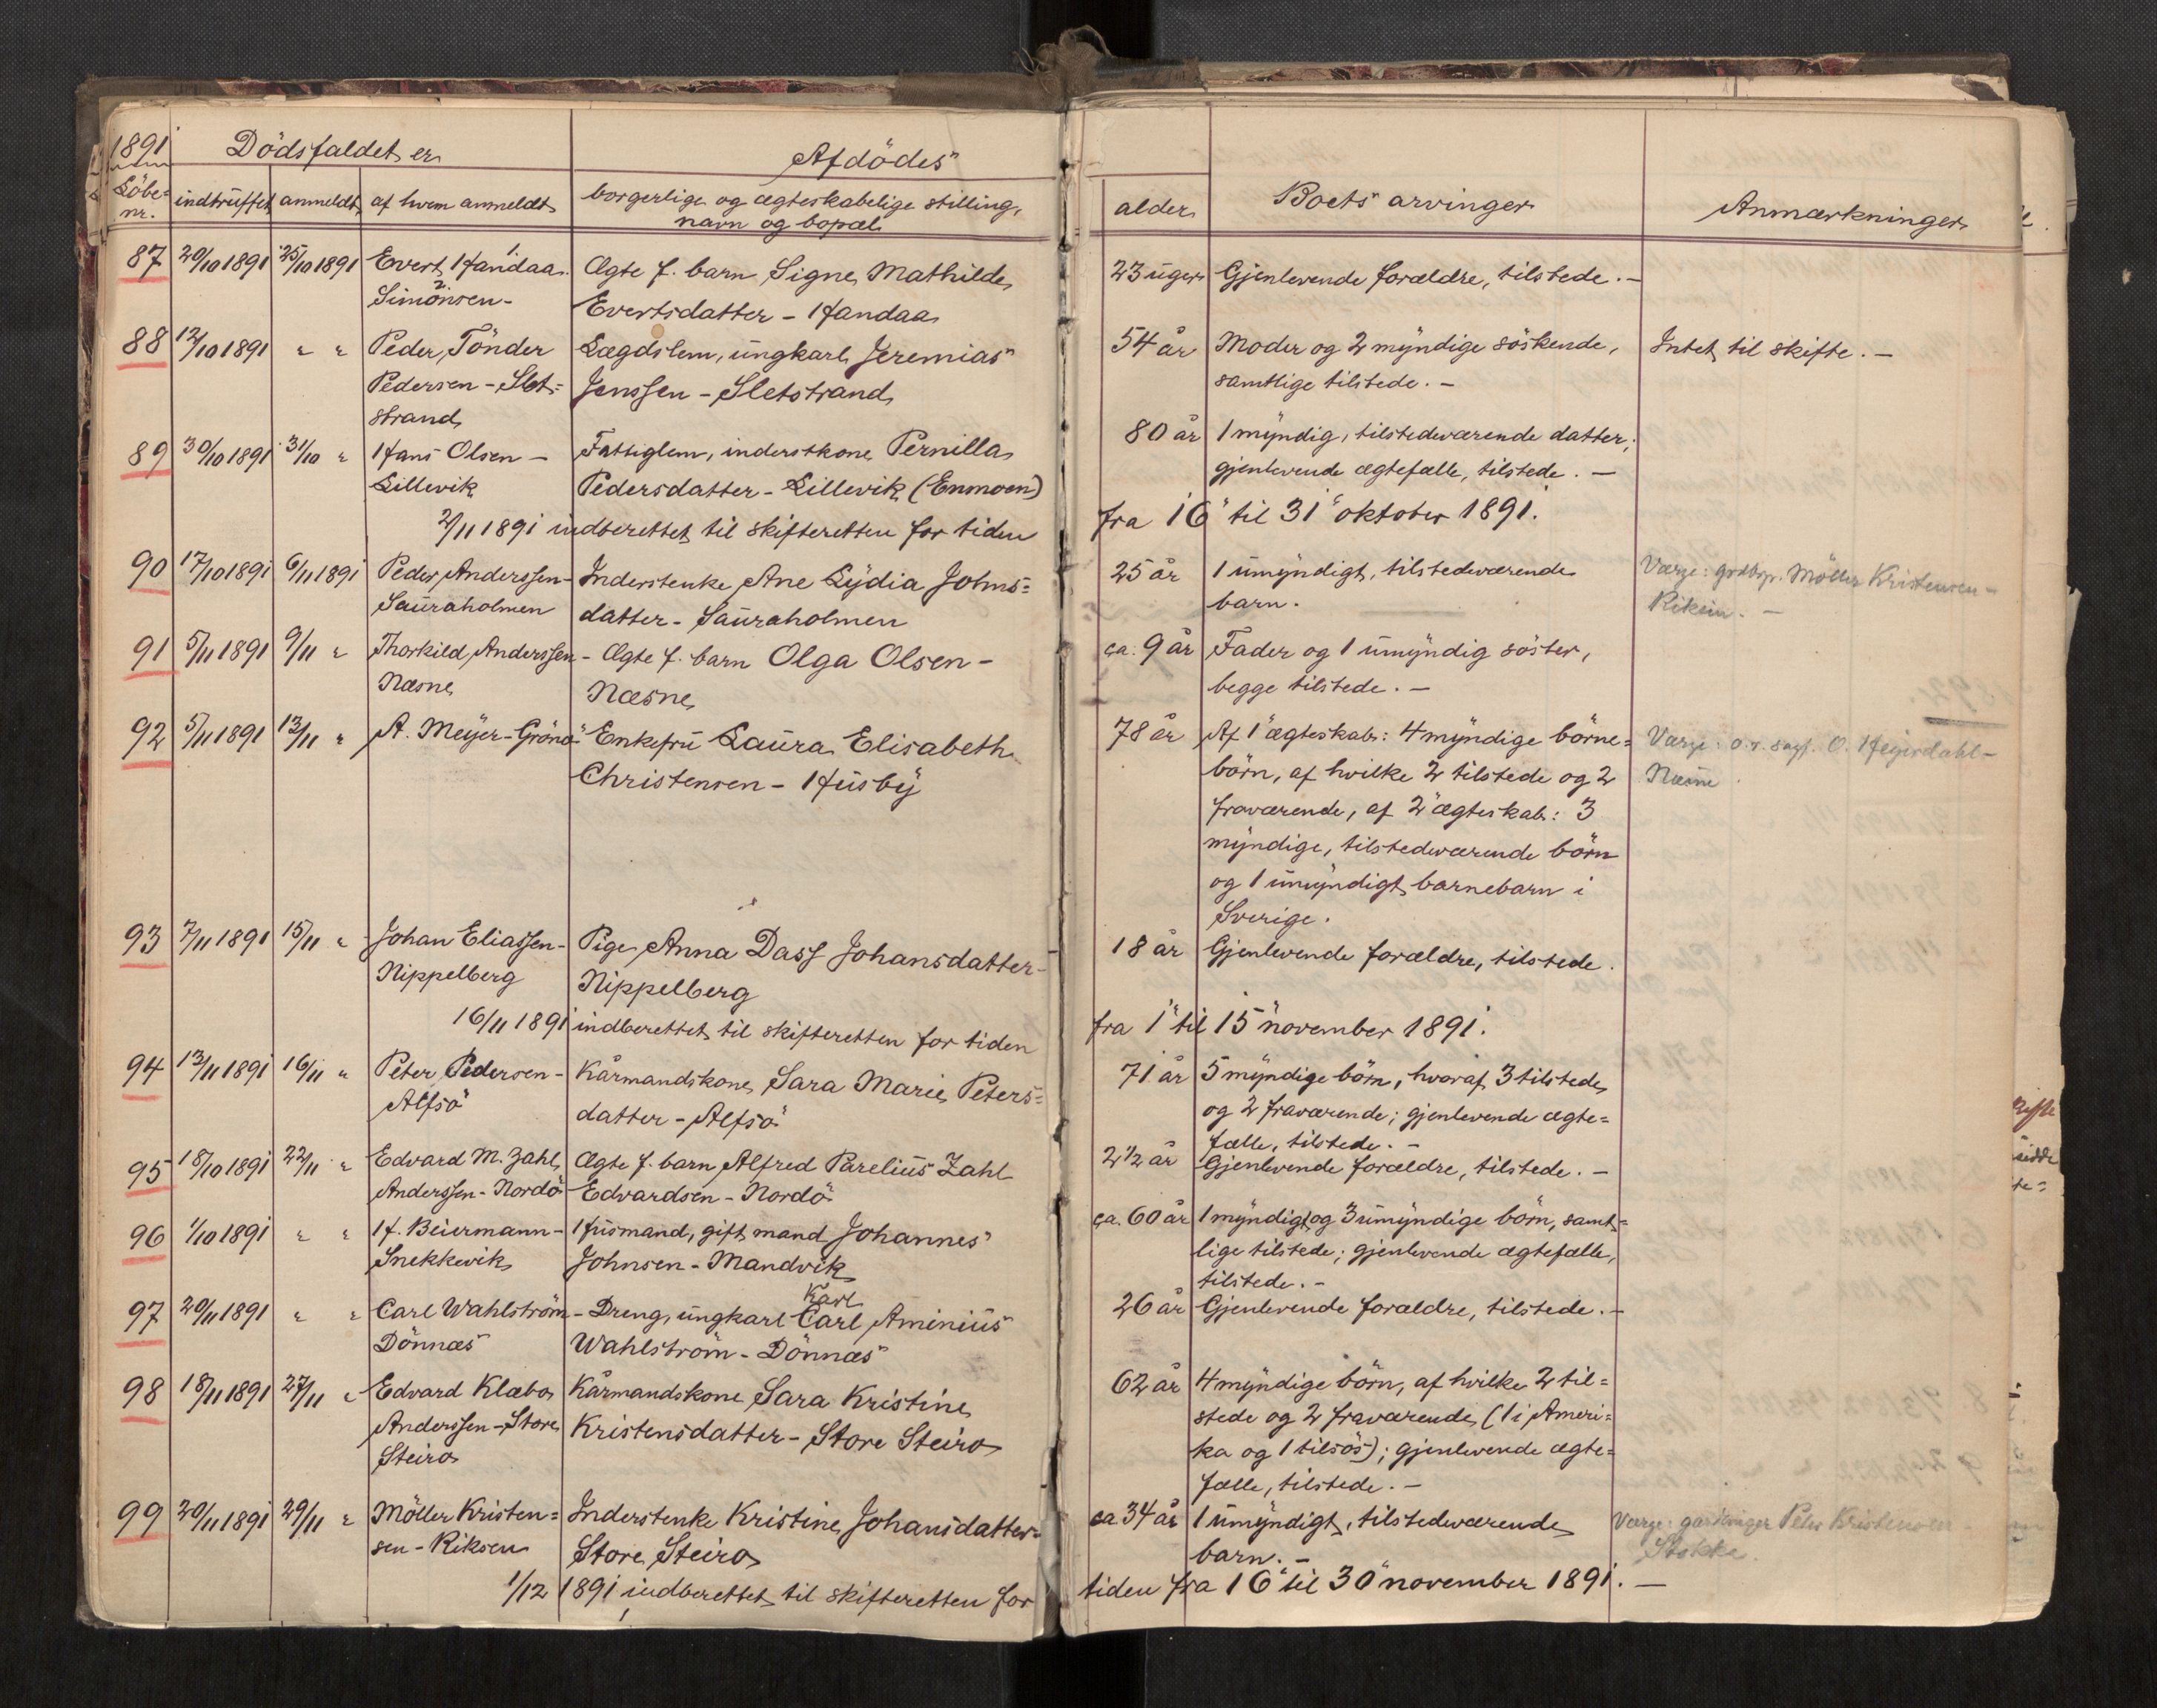 1891
Dödsfaldet er
Afdödes
Löbe-
nr.
indtruffet
anmeldt
af hvem anmeldt
borgerlige og ægteskabelige stilling,
navn og bopæl
87 20/10 1891 25/10 1891 Evert Handaa Ægte f. barn Signe Mathilde
Simonsen - Evertsdatter - Handaa
88 12/10 1891 " " Peder Tönder Lægdslem, ungkarl Jeremias
Pedersen - Slet= Jenssen - Sletstrand
strand
89 30/10 1891 31/10 " Hans Olsen - Fattiglem, inderstkone Pernilla
Lillevik Pedersdatter - Lillevik (Enmoen)
2/11 1891 indberettet til skifteretten for tiden
90 17/10 1891 6/11 1891 Peder Anderssen - Inderstenke Ane Lydia Johns=
Sauraholmen datter - Sauraholmen
91 5/11 1891 9/11 " Thorkild Anderssen - Ægte f. barn Olga Olsen -
Næsne Næsne
92 5/11 1891 13/11 " A. Meyer - Grönö Enkefru Laura Elisabeth
Christensen - Husby
93 7/11 1891 15/11 " Johan Eliassen - Pige Anna Dass Johansdatter -
Nippelberg Nippelberg
16/11 1891 indberettet til skifteretten for tiden
94 13/11 1891 16/11 " Peter Pedersen - Kårmandskone Sara Marie Peters=
Alfsö datter - Alfsö
95 18/10 1891 22/11 " Edvard M. Zahl Ægte f. barn Alfred Parelius Zahl
Anderssen - Nordö Edvardsen - Nordö
96 1/10 1891 " " H. Beiermann - Husmand, gift mand Johannes
Snekkevik Johnsen - Mandvik
Karl
97 20/11 1891 " " Carl Wahlström - Dreng, ungkarl Carl Aminius
Dönnæs Wahlström - Dönnæs
98 18/11 1891 27/11 " Edvard Klæbo Kårmandskone Sara Kristine
Anderssen - Store Kristensdatter - Store Steiro
Steiro
99 20/11 1891 29/11 " Möller Kristen= Inderstenke Kristine Johansdatter -
sen - Riksen Store Steiro
1/12 1891 indberettet til skifteretten for
alder
Boets arvinger
Anmærkninger
23 uger Gjenlevende forældre, tilstede. -
54 år Moder og 2 myndige söskende, Intet til skifte. -
samtlige tilstede. -
80 år 1 myndig, tilstedværende datter;
gjenlevende ægtefælle, tilstede. -
fra 16 til 31 oktober 1891.
25 år 1 umyndigt, tilstedværende Værge: grdbrgr. Möller Kristensen -
barn.
ca. 9 år Fader og 1 umyndig söster,
begge tilstede. -
78 år Af 1 ægteskab: 4 myndige börne= Værge: o.r. sagf. O. Hejerdahl -
börn, af hvilke 2 tilstede og 2 Næsne
fraværende, af 2 ægteskab: 3
myndige, tilstedværende börn
og 1 umyndigt barnebarn i
Sverige.
18 år Gjenlevende forældre, tilstede.
fra 1 til 15 november 1891.
71 år 5 myndige börn, hvoraf 3 tilstede
og 2 fraværende; gjenlevende ægte=
fælle, tilstede. -
2 1/2 år Gjenlevende forældre, tilstede. -
ca. 60 år 1 myndigt og 3 umyndige börn, samt=
lige tilstede; gjenlevende ægtefælle,
tilstede. -
26 år Gjenlevende forældre, tilstede. -
62 år 4 myndige börn, af hvilke 2 til=
stede og 2 fraværende (1 i Ameri=
ka og 1 tilsös); gjenlevende ægte=
fælle, tilstede. -
ca 34 år 1 umyndigt, tilstedværende Værge: Peter Kristensen
barn. - Stokke.
tiden fra 16 til 30 november 1891. -